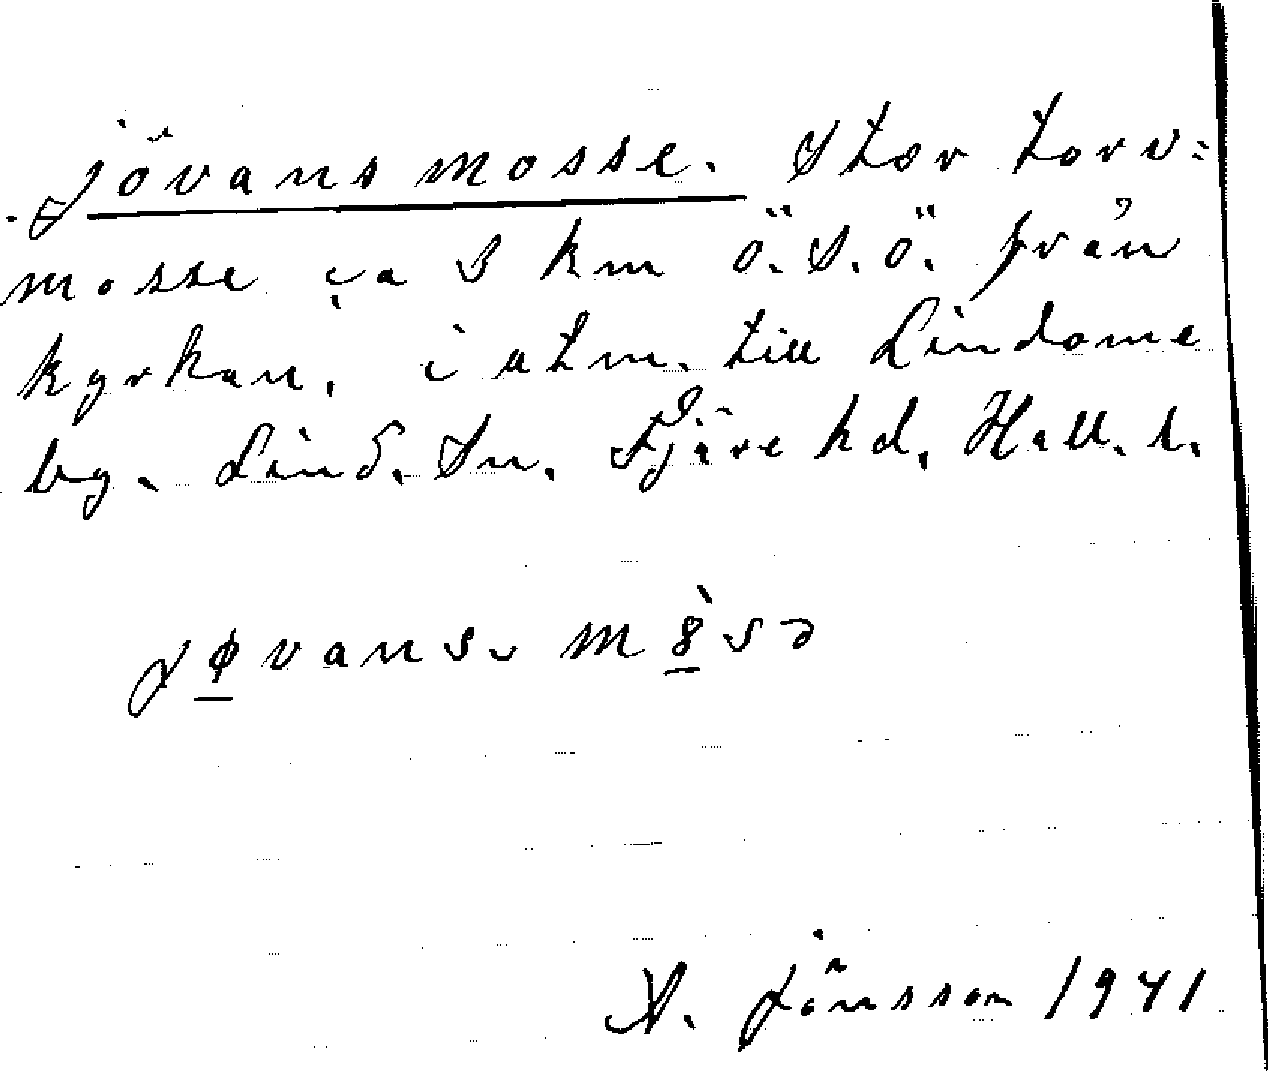 Jövans mosse. Stor torv=
mosse ca 3 km ö.s.ö. från
kyrkan, i utm. till Lindome
by. Lind. Sn. Fjäre hd. Hall. l.
jøvans mosə
A. Jönsson 1941